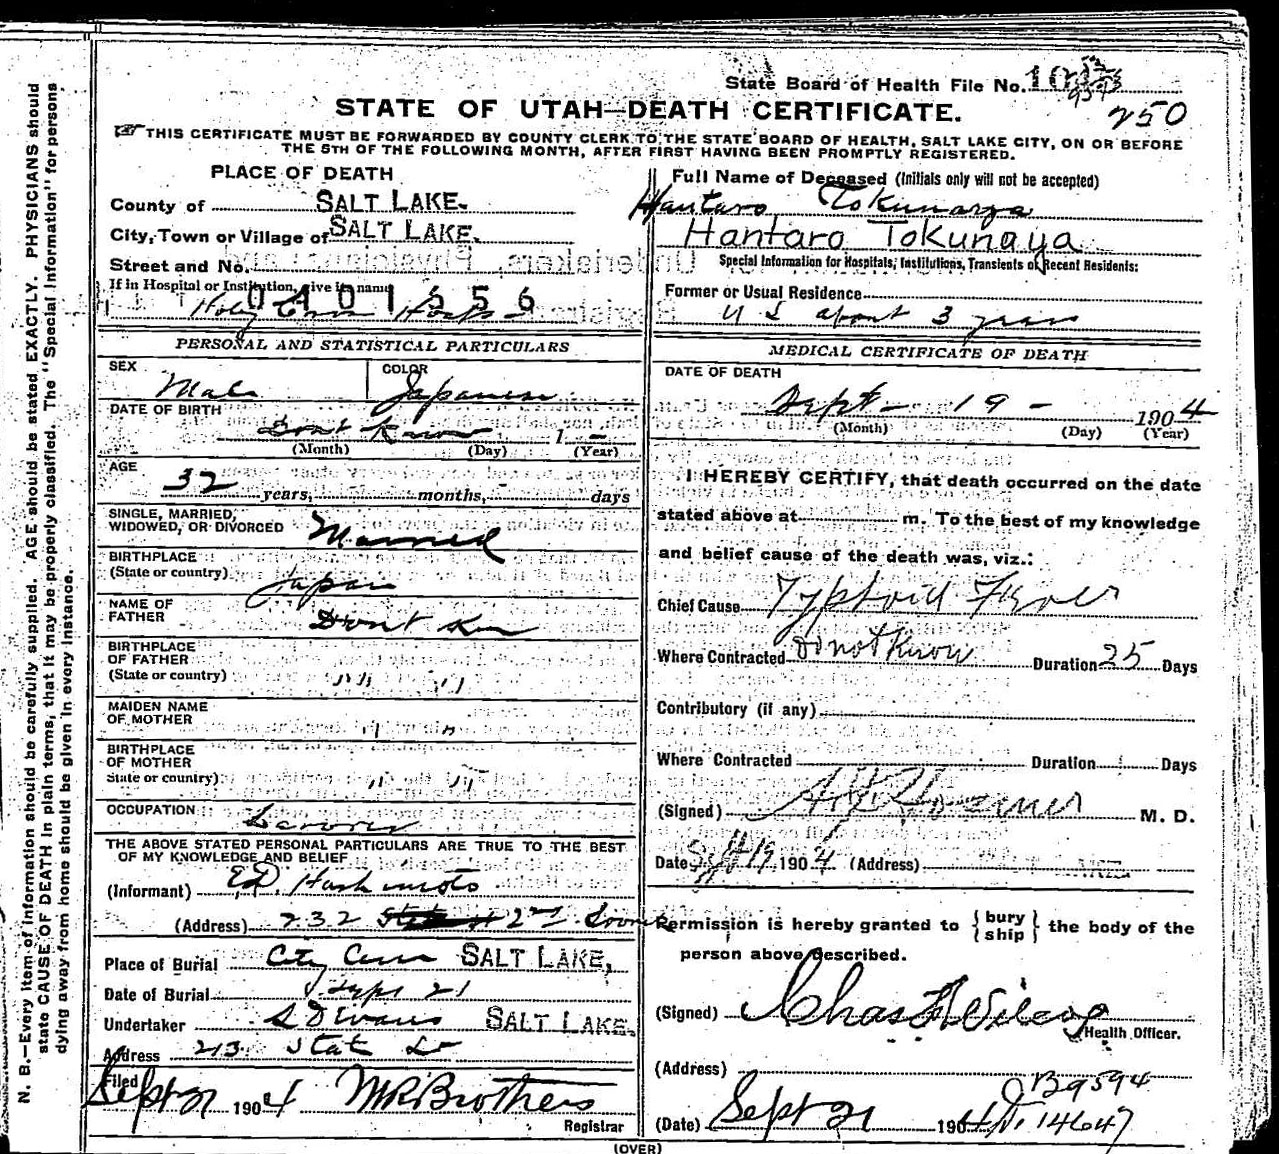 State Board of Health File No.
STATE OF UTAH—DEATH CERTIFICATE.
250
THIS CERTIFICATE MUST BE FORWARDED BY COUNTY CLERK TO THE STATE BOARD OF HEALTH, SALT LAKE CITY, ON OR BEFORE
THE 5TH OF THE FOLLOWING MONTH, AFTER FIRST HAVING BEEN PROMPTLY REGISTERED.
PLACE OF DEATH
County of SALT LAKE.
City, Town or Village of SALT LAKE.
Street and No.
If in Hospital or Institution, give its name
0401556
Holy Cross Hosp
Full Name of Deceased (Initials only will not be accepted)
Hantaro Tokunaga
Hantaro Tokunaya
Special Information for Hospitals, Institutions, Transients or Recent Residents:
Former or Usual Residence
U S about 3 years
PERSONAL AND STATISTICAL PARTICULARS
SEX Male
COLOR Japanese
DATE OF BIRTH
Dont Know 1 –
(Month) (Day) (Year)
AGE
32 years, months, days
SINGLE, MARRIED,
WIDOWED, OR DIVORCED Married
BIRTHPLACE
(State or country) Japan
NAME OF
FATHER Dont Know
BIRTHPLACE
OF FATHER
(State or country) " "
MAIDEN NAME
OF MOTHER " "
BIRTHPLACE
OF MOTHER
State or country) " "
OCCUPATION
THE ABOVE STATED PERSONAL PARTICULARS ARE TRUE TO THE BEST
OF MY KNOWLEDGE AND BELIEF
(Informant) E.D. Hashimoto
(Address) 232 2nd South
Place of Burial City Cem SALT LAKE,
Date of Burial Sept 21
Undertaker S D Evans SALT LAKE.
Address 213 State St
Filed
Sept 21 1904 M R Brothers
Registrar
MEDICAL CERTIFICATE OF DEATH
DATE OF DEATH
Sept – 19 – 1904
(Month) (Day) (Year)
I HEREBY CERTIFY, that death occurred on the date
stated above at m. To the best of my knowledge
and belief cause of the death was, viz.:
Chief Cause Typhoid Fever
Where Contracted Do not Know Duration 25 Days
Contributory (if any)
Where Contracted Duration Days
(Signed) M. D.
Date Sept 19 1904 (Address)
Permission is hereby granted to { bury ship } the body of the
person above described.
(Signed) Chas F Wilcox
Health Officer.
(Address)
B9594
(Date) Sept 21 1904 14647
(OVER)
N. B.—Every item of information should be carefully supplied. AGE should be stated EXACTLY. PHYSICIANS should
state CAUSE OF DEATH in plain terms, that it may be properly classified. The "Special Information" for persons
dying away from home should be given in every instance.